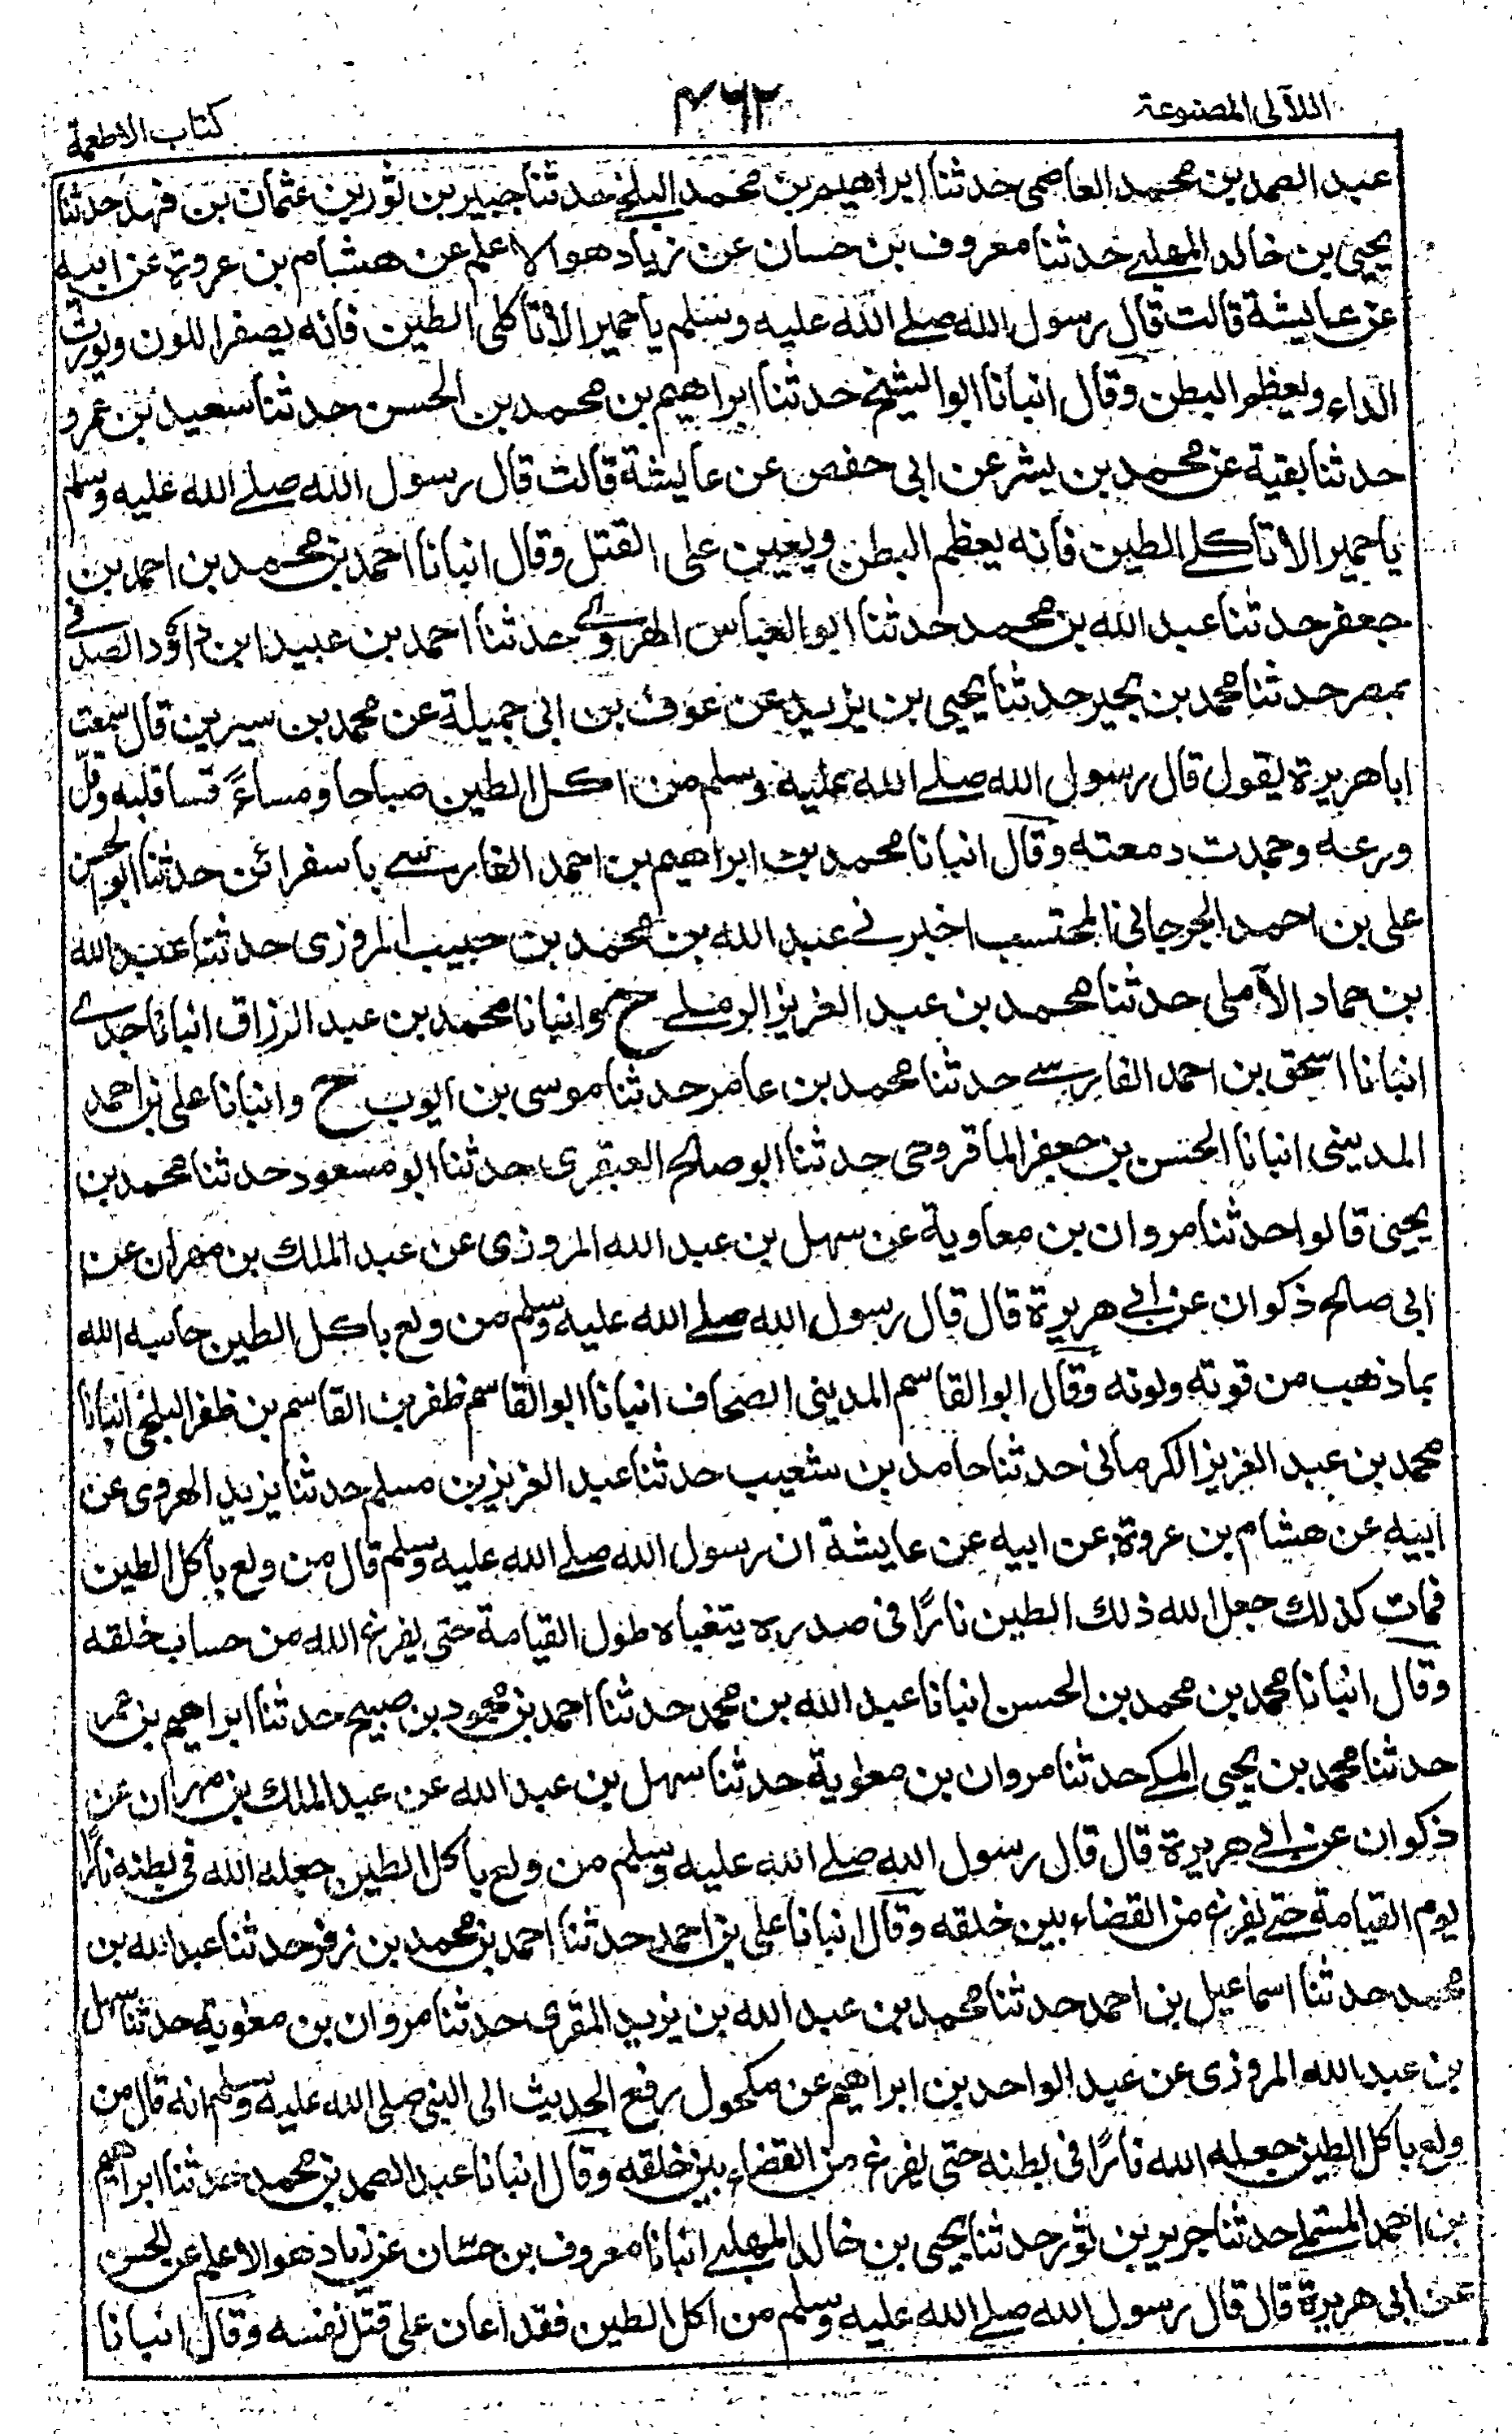 اللآلى المصنوعة
۴۶۲
كتاب الاطعمة
عبد الصمد بن محمد العاصمى حدثنا ابراهيم بن محمد البلخى حدثنا جبير بن ثور بن عثمان بن فهد حدثنا
يحيى بن خالد المهلبے حدثنا معروف بن حسان عن زياد هو الاعلم عن هشام بن عروة عن ابيه
عن عايشة قالت قال رسول الله صلے الله عليه وسلم ياحميرا لا تاكلى الطين فانه يصفر اللون ويورث
الداء ويعظم البطن وقال انبانا ابو الشيخ حدثنا ابراهيم بن محمد بن الحسن حدثنا سعيد بن عمرو
حدثنا بقية عن محمد بن بشر عن ابى حفص عن عايشة قالت قال رسول الله صلے الله عليه وسلم
ياحميرا لا تاكلے الطين فانه يعظم البطن ويعين على القتل وقال انبانا احمد بن محمد بن احمد بن
جعفر حدثنا عبد الله بن محمد حدثنا ابو العباس الهروے حدثنا احمد بن عبيد ابن داؤد الصدفے
بمصر حدثنا محمد بن بجير حدثنا يحيى بن يزيد عن عوف بن ابى جميلة عن محمد بن سيرين قال سمعت
ابا هريرة يقول قال رسول الله صلے الله عليه وسلم من اكل الطين صباحا ومساءً قسا قلبه وقلّ
ورعه وجمدت دمعته وقال انبانا محمد بن ابراهيم بن احمد الفارسے باسفرائن حدثنا ابو الحسن
على بن احمد الجرجانى المحتسب اخبرنے عبد الله بن محمد بن حبيب المروزى حدثنا عبد الله
بن حماد الآملى حدثنا محمد بن عبد العزيز الرملے ح وانبانا محمد بن عبد الرزاق انبانا جدے
انبانا اسحق بن احمد الفارسے حدثنا محمد بن عامر حدثنا موسى بن ايوب ح وانبانا على بن احمد
المدينى انبانا الحسن بن جعفر الماقروحى حدثنا ابو صالح العبقرى حدثنا ابو مسعود حدثنا محمد بن
يحيى قالوا حدثنا مروان بن معاوية عن سهل بن عبد الله المروزى عن عبد الملك بن مهران عن
ابى صالح ذكوان عن ابے هريرة قال قال رسول الله صلے الله عليه وسلم من ولع باكل الطين حاسبه الله
بما ذهب من قوته ولونه وقال ابو القاسم المدينى الصحاف انبانا ابو القاسم ظفر بن القاسم بن ظفر البلخى انبانا
محمد بن عبد العزيز الكرمانى حدثنا حامد بن شعيب حدثنا عبد العزيز بن مسلم حدثنا يزيد الهروى عن
ابيه عن هشام بن عروة عن ابيه عن عايشة ان رسول الله صلے الله عليه وسلم قال من ولع باكل الطين
فمات كذلك جعل الله ذلك الطين نارًا فى صدره يتغياه طول القيامة حتى يفرغ الله من حساب خلقه
وقال انبانا محمد بن محمد بن الحسن انبانا عبد الله بن محمد حدثنا احمد بن محمود بن صبيح حدثنا ابراهيم بن عمر
حدثنا محمد بن يحيى المكے حدثنا مروان بن معٰوية حدثنا سهل بن عبد الله عن عبد الملك بن مهران عن
ذكوان عن ابے هريرة قال قال رسول الله صلے الله عليه وسلم من ولع باكل الطين جعله الله فى بطنه نارًا
يوم القيامة حتے يفرغ من القضاء بين خلقه وقال انبانا على بن احمد حدثنا احمد بن محمد بن زفر حدثنا عبد الله بن
محمد حدثنا اسماعيل بن احمد حدثنا محمد بن عبد الله بن يزيد المقرى حدثنا مروان بن معٰوية حدثنا سهل
بن عبد الله المروزى عن عبد الواحد بن ابراهيم عن مكحول رفع الحديث الى النبى صلى الله عليه وسلم انه قال من
ولع باكل الطين جعله الله نارًا فى بطنه حتى يفرغ من القضاء بين خلقه وقال انبانا عبد الصمد بن محمد حدثنا ابراهيم
بن احمد المستملے حدثنا جرير بن ثور حدثنا يحيى بن خالد المهلبے انبانا معروف بن حسان عن زياد هو الاعلم عن الحسن
عن ابى هريرة قال قال رسول الله صلے الله عليه وسلم من اكل الطين فقد اعان على قتل نفسه وقال انبانا